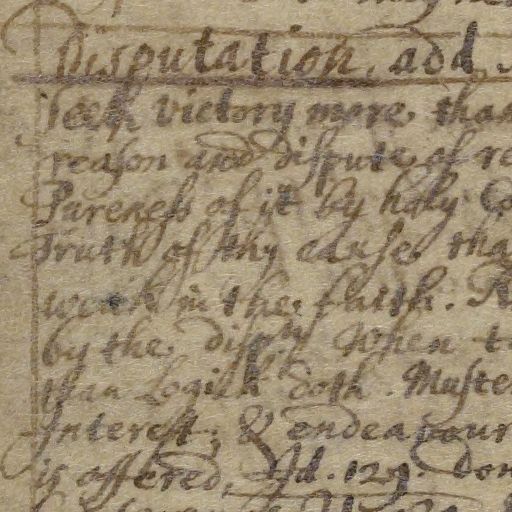 Disputation, add.
seek victory more than
reason and dispute of re
Pureness of it by holy Co
Truth of thy cause tha
weak in the faith.
by the disp:ty When t
than Logick doth. Maste
Interest, & endeavour
is offered, Id. 129. Don